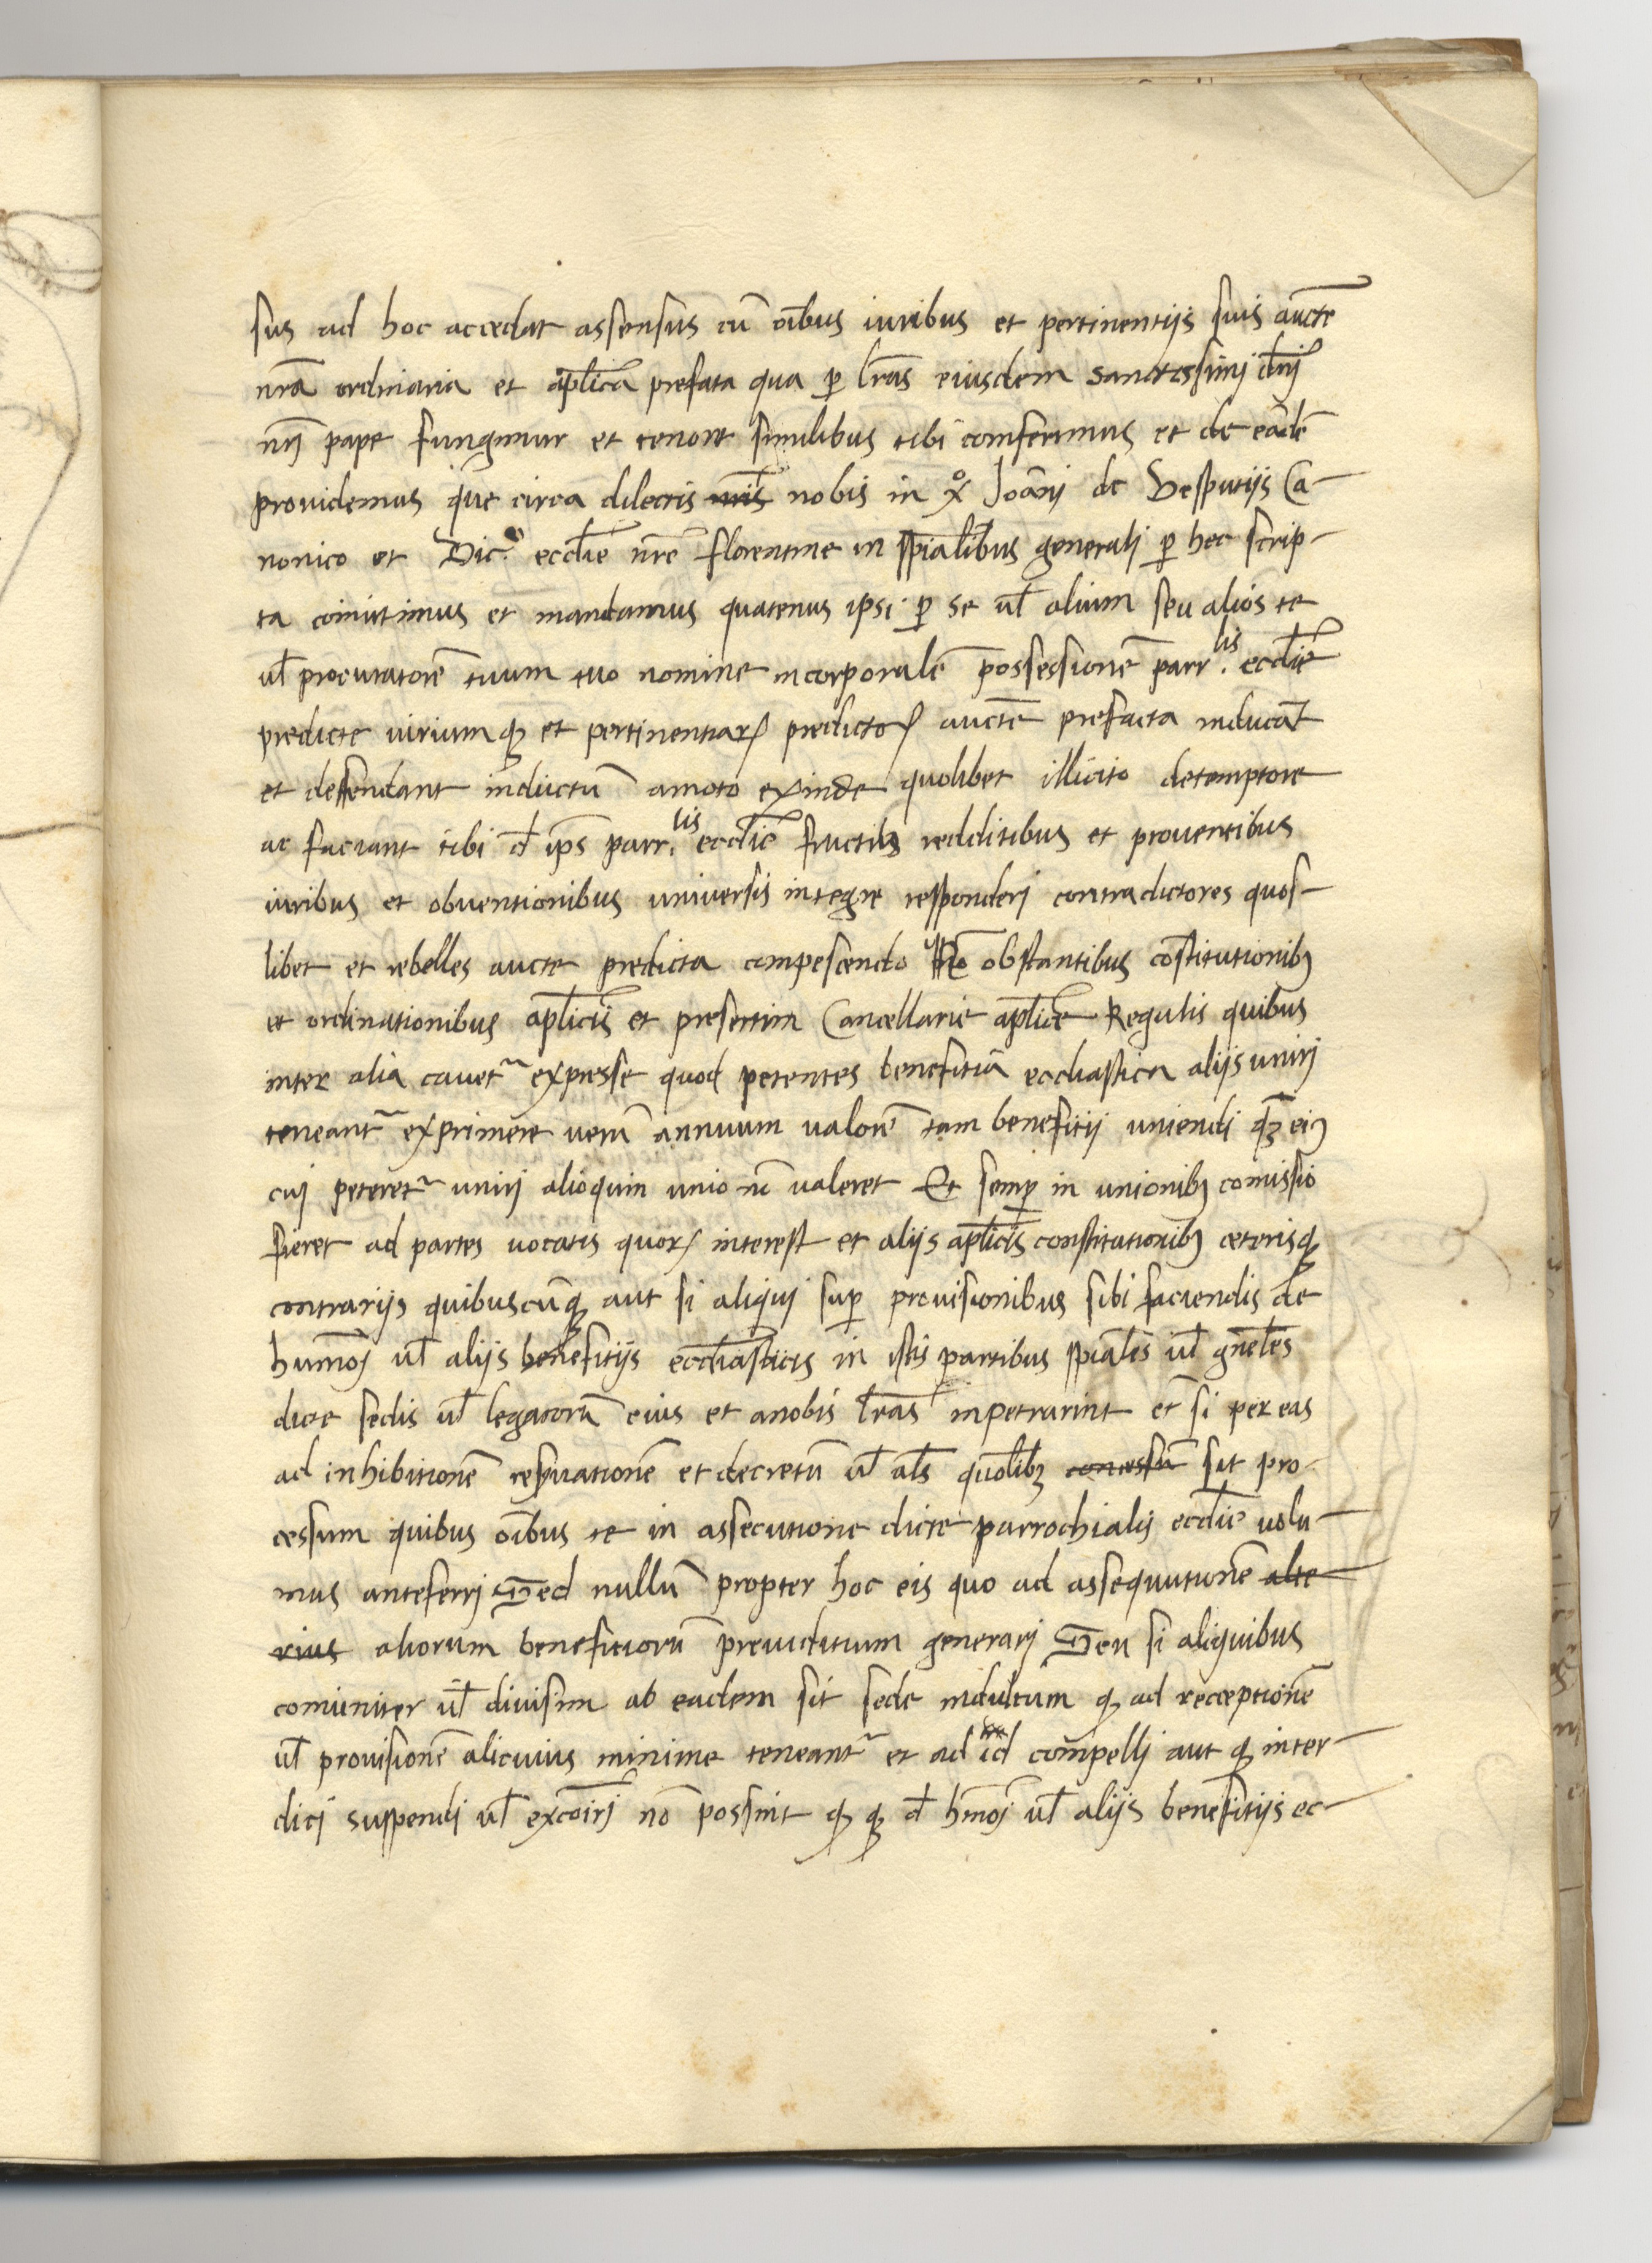 sus ad hoc accedat assensus cū oībus iuribus et pertinentijs suis auctē
nrā ordinaria et aplicā prefata qua ꝑ lrās eiusdem sanctissimj dnj̄
nrj̄ pape fungimur et tenore similibus tibi comferimus et de eadē
prouidemus que circa dilectis nris nobis in xº Joānj de Vesputijs Ca-
nonico et Vic.º eccliē nrē florentine in spialibus generalj ꝑ hec scrip-
ta comittimus et mandamus quatenus ipsi ꝑ se ul̄ alium seu alios te
ul̄ procuratorē tuum tuo nomine in corporalē possessionē parr.lis eccliē
predicte iurium qꝫ et pertinentiaꝝ predictoꝝ auctē prefacta inducāt
et deffendant inductū amoto exinde quolibet illicito detemptore
ac faciant tibi d̄ ips parr.lis eccliē fructibꝫ redditibus et prouentibus
iuribus et obuentionibus universis integre responderj contradictores quos-
libet et rebelles aucte predicta compescendo Nō obstantibus cōstitutionibꝫ
et ordinationibus aplicis et presertim Cancellarie aplicē Regulis quibus
inter alia cauetr expresse quod petentes benefitiā eccliastica alijs unirj
teneantr exprimere verū annuum valorē tam benefitij uniendi qꝫ eiꝰ
cuj peteretr unirj alioquin unio nō valeret Et semꝑ in unionibꝫ comissio
fieret ad partes vocatis quoꝝ interest et alijs aplicis constitutionibꝫ ceterisqꝫ
contrarijs quibuscūqꝫ aut si aliquj suꝑ provisionibus sibi faciendis de
humōj ul̄ alijs benefitijs eccliasticis in istis partibus spiales ul̄ gnēles
dicte sedis ul̄ legatorū eius et anobis lrās inpetrarint et̄ si per eas
ad inhibitionē reseruationē et decretū ul̄ als quōlibꝫ concessū sit pro-
cessum quibus oībus te in assecutione dicte parrochialij eccliē uolu-
mus anteferrj Sed nullū propter hoc eis quo ad assequutionē alte-
rius aliorum beneficiorū preiuditium generarj Seu si aliquibus
comuniter ul̄ divisim ab eadem sit sede indultum qꝫ ad receptionē
ul̄ provisionē alicuius minime teneantr et ad id compellj aut qꝫ inter-
dicj suspendi ul̄ excōirj nō possint qꝫ qꝫ d̄ hmōj ul̄ alijs benefitijs ec-